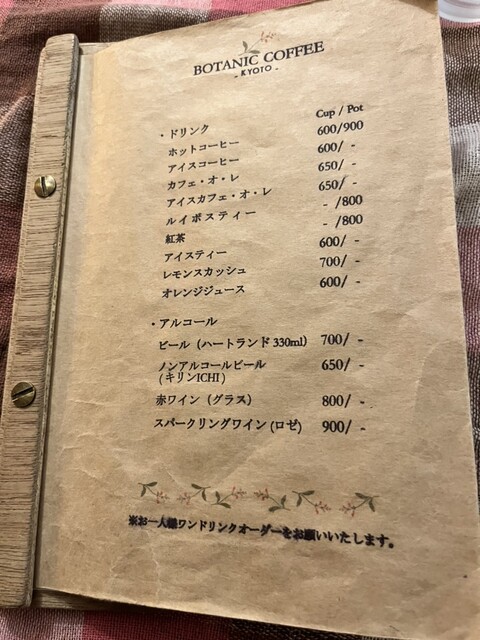 BOTANIC COFFEE
- KYOTO -
・ドリンク Cup / Pot
ホットコーヒー 600/900
アイスコーヒー 600/ -
カフェ・オ・レ 650/ -
アイスカフェ・オ・レ 650/ -
ルイボスティー - /800
紅茶 - /800
アイスティー 600/ -
レモンスカッシュ 700/ -
オレンジジュース 600/ -
・アルコール
ビール（ハートランド 330ml） 700/ -
ノンアルコールビール 650/ -
(キリンICHI)
赤ワイン（グラス） 800/ -
スパークリングワイン (ロゼ) 900/ -
※お一人様ワンドリンクオーダーをお願いいたします。